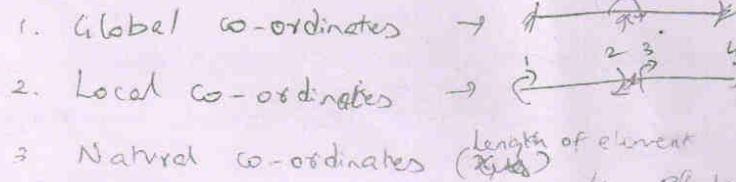 1. Global co-ordinates →
2 3 4
1
2. Local co-ordinates →
3 Natural co-ordinates (Length of element)